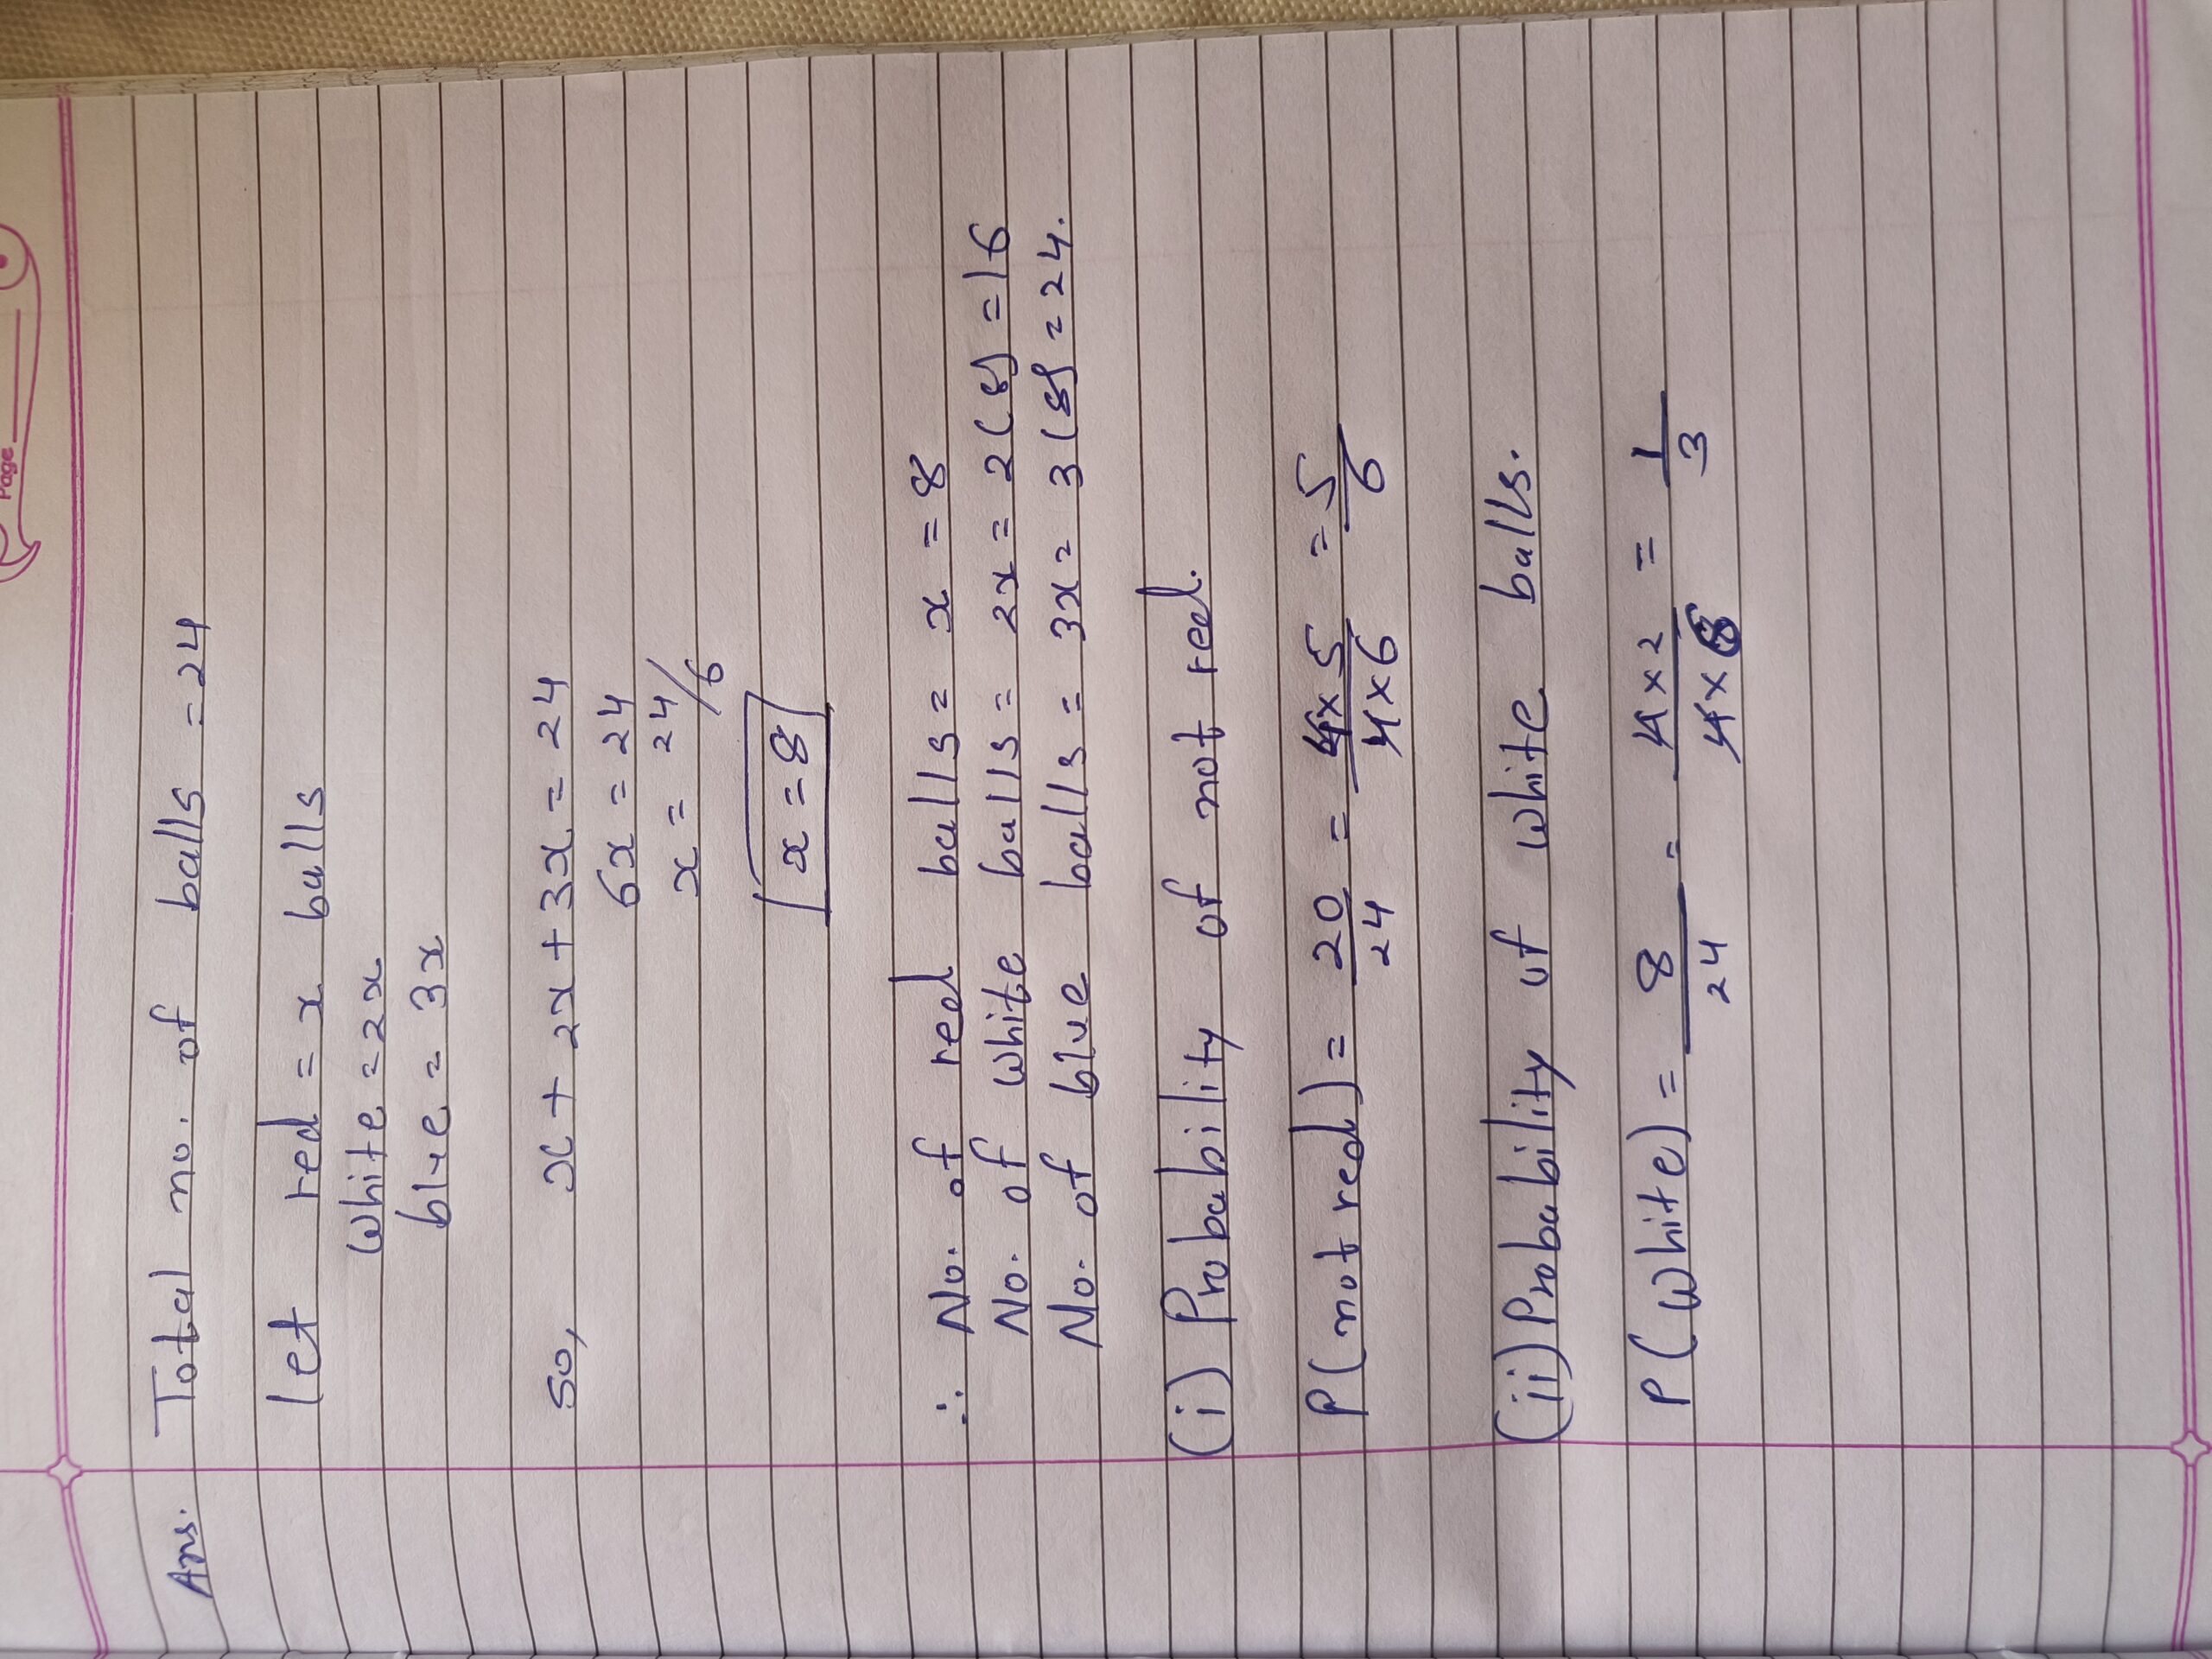 Page
Ans. Total no. of balls = 24
let red = x balls
white = 2x
blue = 3x
so, x + 2x + 3x = 24
6x = 24
x = 24/6
x = 8
∴ No. of red balls = x = 8
No. of white balls = 2x = 2(8) = 16
No. of blue balls = 3x = 3(8) = 24.
(i) Probability of not red.
P(not red) = 20/24 = 4×5/4×6 = 5/6
(ii) Probability of white balls.
P(white) = 8/24 = 4×2/4×6 = 1/3